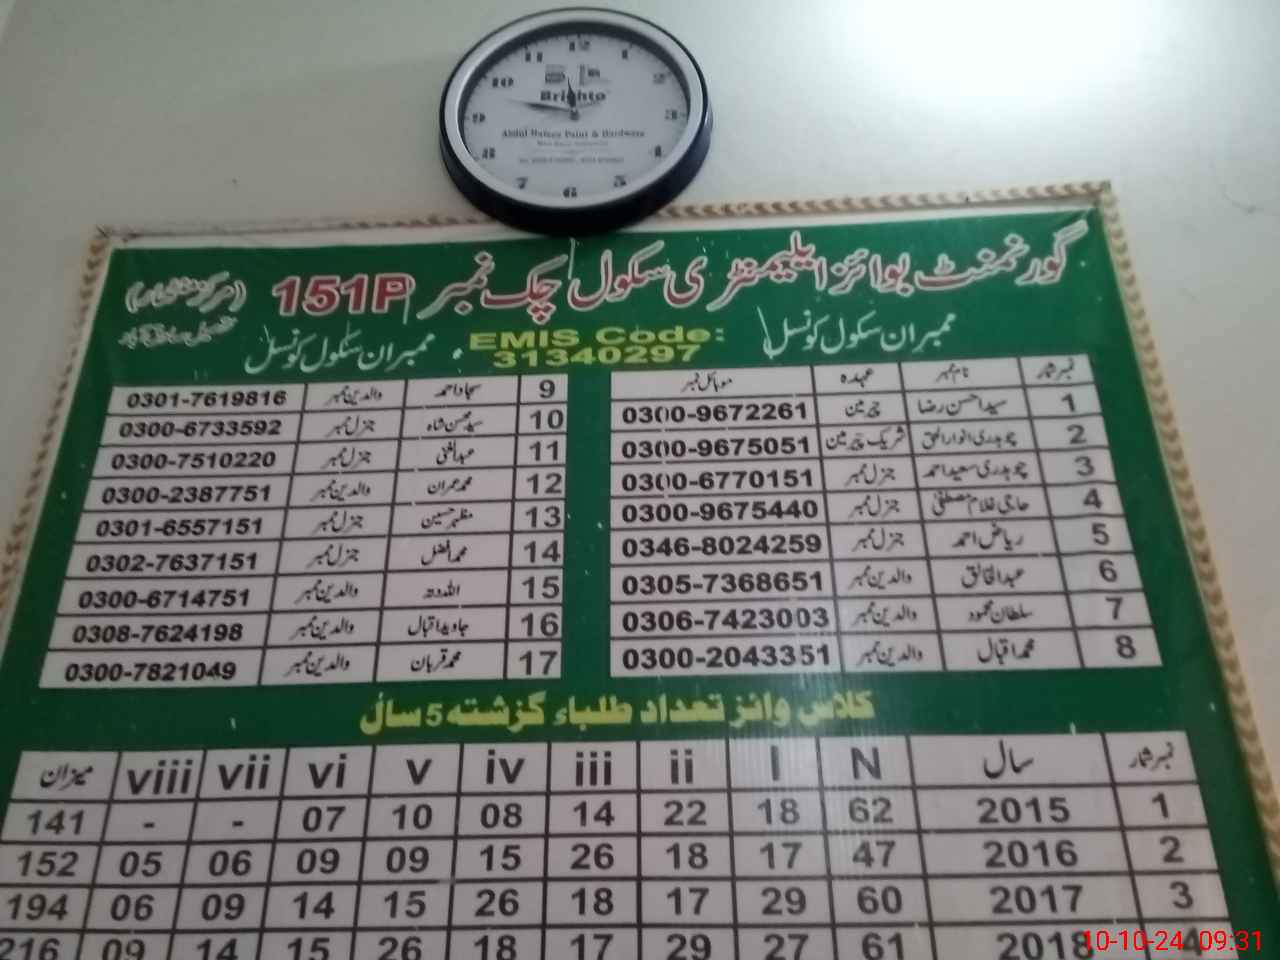 12
11 1
10 2
Brighto
9 3
Abdul Hafeez Paint & Hardware
8 4
7 5
6
گورنمنٹ بوائز ایلیمنٹری سکول چک نمبر 151P
ممبران سکول کونسل
EMIS Code:
31340297
ممبران سکول کونسل
نمبر شمار نام ممبر عہدہ موبائل نمبر
1 سید احسن رضا چیرمین 0300-9672261
2 چوہدری انوار الحق شریک چیرمین 0300-9675051
3 چوہدری سعید احمد جنرل ممبر 0300-6770151
4 حاجی غلام مصطفیٰ جنرل ممبر 0300-9675440
5 ریاض احمد جنرل ممبر 0346-8024259
6 عبدالخالق والدین ممبر 0305-7368651
7 سلطان محمود والدین ممبر 0306-7423003
8 محمد اقبال والدین ممبر 0300-2043351
9 سجاد احمد والدین ممبر 0301-7619816
10 سید محسن شاہ جنرل ممبر 0300-6733592
11 عبدالغنی جنرل ممبر 0300-7510220
12 محمد عمران والدین ممبر 0300-2387751
13 مظہر حسین جنرل ممبر 0301-6557151
14 محمد افضل جنرل ممبر 0302-7637151
15 اللہ دتہ والدین ممبر 0300-6714751
16 جاوید اقبال والدین ممبر 0308-7624198
17 محمد قربان والدین ممبر 0300-7821049
کلاس وائز تعداد طلباء گزشتہ 5 سال
نمبر شمار سال N I ii iii iv v vi vii viii میزان
1 2015 62 18 22 14 08 10 07 - - 141
2 2016 47 17 18 26 15 09 09 06 05 152
3 2017 60 29 17 18 26 15 14 09 06 194
4 2018 61 27 29 17 18 26 15 14 09 216
10-10-24 09:31